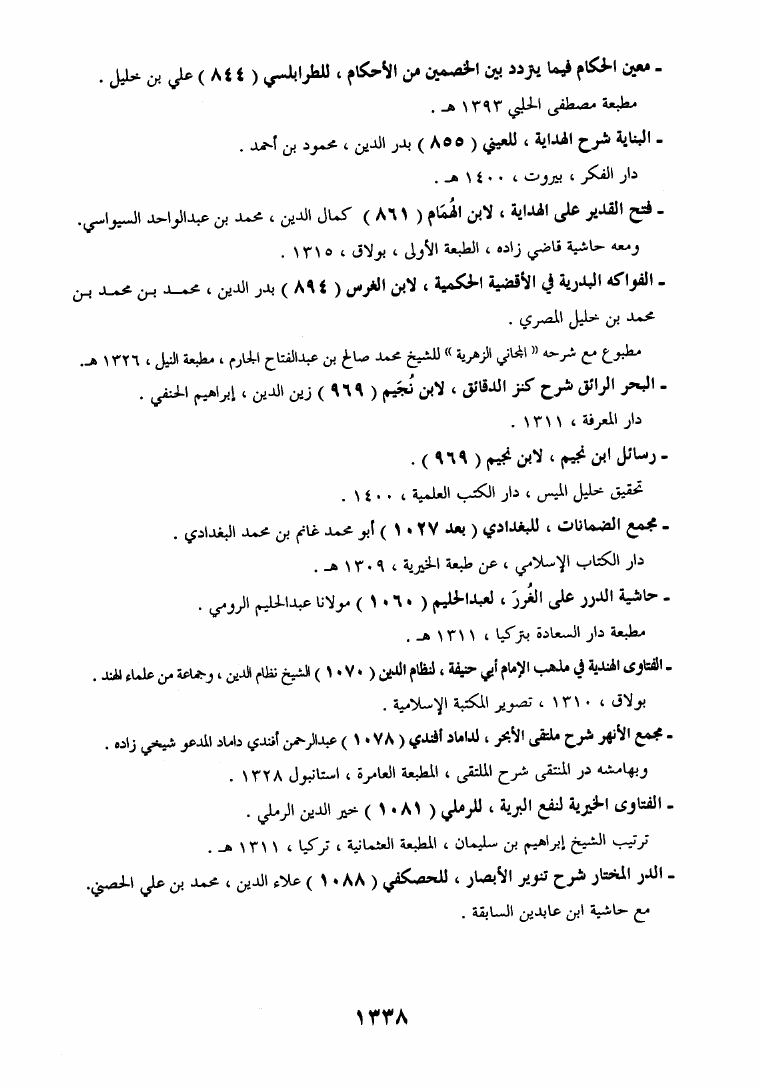 ـ معين الحكام فيما يتردد بين الخصمين من الأحكام ، للطرابلسي ( ٨٤٤ ) علي بن خليل .
مطبعة مصطفى الحلبي ١٣٩٣ هـ .
ـ البناية شرح الهداية ، للعيني ( ٨٥٥ ) بدر الدين ، محمود بن أحمد .
دار الفكر ، بيروت ، ١٤٠٠ هـ .
ـ فتح القدير على الهداية ، لابن الهُمَام ( ٨٦١ ) كمال الدين ، محمد بن عبدالواحد السيواسي.
ومعه حاشية قاضي زاده ، الطبعة الأولى ، بولاق ، ١٣١٥ .
ـ الفواكه البدرية في الأقضية الحكمية ، لابن الغرس ( ٨٩٤ ) بدر الدين ، محمد بن محمد بن
محمد بن خليل المصري .
مطبوع مع شرحه « المجاني الزهرية » للشيخ محمد صالح بن عبدالفتاح الجارم ، مطبعة النيل ، ١٣٢٦ هـ.
ـ البحر الرائق شرح كنز الدقائق ، لابن نُجَيم ( ٩٦٩ ) زين الدين ، إبراهيم الحنفي .
دار المعرفة ، ١٣١١ .
ـ رسائل ابن نجيم ، لابن نجيم ( ٩٦٩ ) .
تحقيق خليل الميس ، دار الكتب العلمية ، ١٤٠٠ .
ـ مجمع الضمانات ، للبغدادي ( بعد ١٠٢٧ ) أبو محمد غانم بن محمد البغدادي .
دار الكتاب الإسلامي ، عن طبعة الخيرية ، ١٣٠٩ هـ .
ـ حاشية الدرر على الغُررَ ، لعبدالحليم ( ١٠٦٠ ) مولانا عبدالحليم الرومي .
مطبعة دار السعادة بتركيا ، ١٣١١ هـ .
ـ الفتاوى الهندية في مذهب الإمام أبي حنيفة ، لنظام الدين ( ١٠٧٠ ) الشيخ نظام الدين ، وجماعة من علماء الهند .
بولاق ، ١٣١٠ ، تصوير المكتبة الإسلامية .
ـ مجمع الأنهر شرح ملتقى الأبحر ، لداماد أفندي ( ١٠٧٨ ) عبدالرحمن أفندي داماد المدعو شيخي زاده .
وبهامشه در المنتقى شرح الملتقى ، المطبعة العامرة ، استانبول ١٣٢٨ .
ـ الفتاوى الخيرية لنفع البرية ، للرملي ( ١٠٨١ ) خير الدين الرملي .
ترتيب الشيخ إبراهيم بن سليمان ، المطبعة العثمانية ، تركيا ، ١٣١١ هـ .
ـ الدر المختار شرح تنوير الأبصار ، للحصكفي ( ١٠٨٨ ) علاء الدين ، محمد بن علي الحصني.
مع حاشية ابن عابدين السابقة .
١٣٣٨